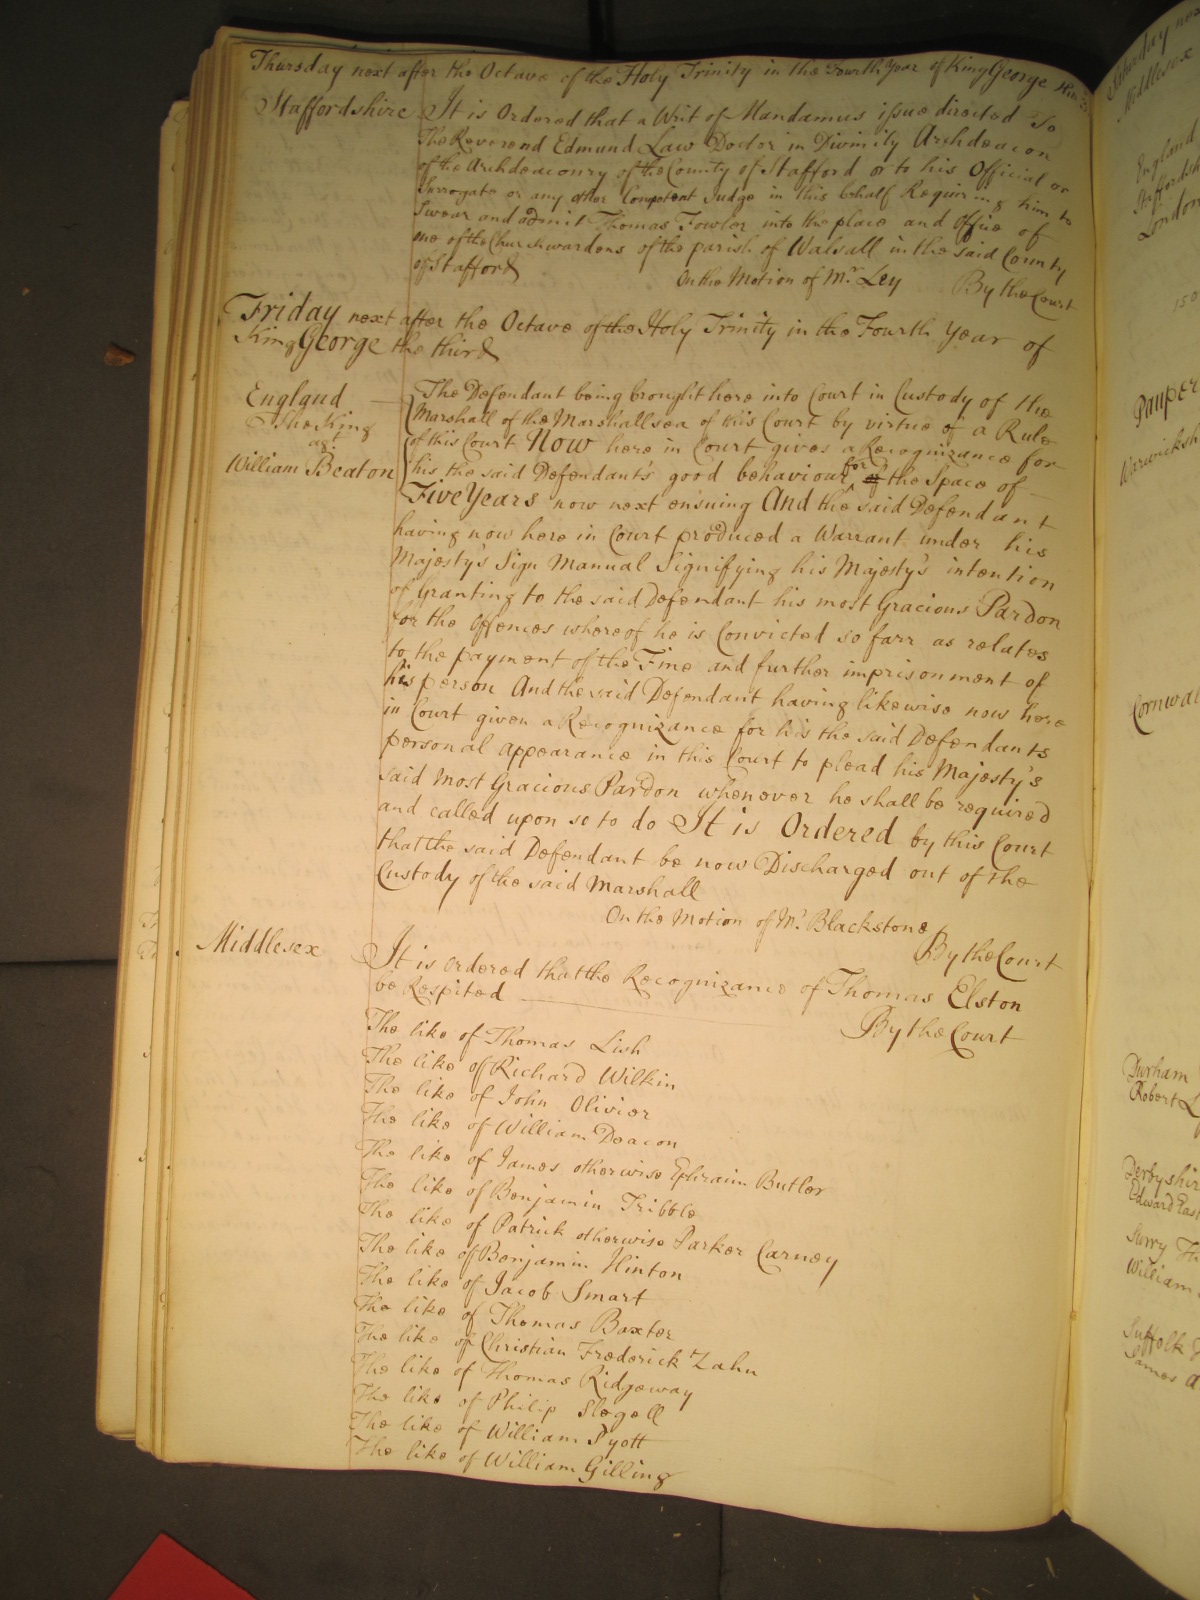 Thursday next after the Octave of the Holy Trinity in the Fourth Year of King George
Staffordshire It is Ordered that a Writ of Mandamus issue directed To
The Reverend Edmund Law Doctor in Divinity Archdeacon
of the Archdeaconry of the County of Stafford or to his Official or
Surrogate or any other Competent Judge in this behalf Requiring him to
Swear and admit Thomas Fowler into the place and Office of
one of the Churchwardens of the parish of Walsall in the said County
of Stafford
On the Motion of Mr. Ley By the Court
Friday next after the Octave of the Holy Trinity in the Fourth Year of
King George the third
England
The King
agt.
William Beaton
The Defendant being brought here into Court in Custody of the
Marshall of the Marshallsea of this Court by virtue of a Rule
of this Court Now here in Court gives a Recognizance for
his the said Defendant's good behaviour for of the Space of
Five Years now next ensuing And the said Defendant
having now here in Court produced a Warrant under his
Majesty's Sign Manual Signifying his Majesty's intention
of Granting to the said Defendant his most Gracious Pardon
for the Offences whereof he is Convicted so farr as relates
to the payment of the Fine and further imprisonment of
his person And the said Defendant having likewise now here
in Court given a Recognizance for his the said Defendants
personal appearance in this Court to plead his Majesty's
said most Gracious Pardon whenever he shall be required
and called upon so to do It is Ordered by this Court
that the said Defendant be now Discharged out of the
Custody of the said Marshall
On the Motion of Mr. Blackstone
By the Court
Middlesex It is ordered that the Recognizance of Thomas Elston
be Respited
By the Court
The like of Thomas Lish
The like of Richard Wilkin
The like of John Olivier
The like of William Deacon
The like of James otherwise Ephraim Butler
The like of Benjamin Tribble
The like of Patrick otherwise Parker Carney
The like of Benjamin Hinton
The like of Jacob Smart
The like of Thomas Baxter
The like of Christian Frederick Zahn
The like of Thomas Ridgeway
The like of Philip Slegell
The like of William Pyott
The like of William Gilling
Middlesex
England
London
150
Pauper
Durham
Robert
Surry
William
Suffolk